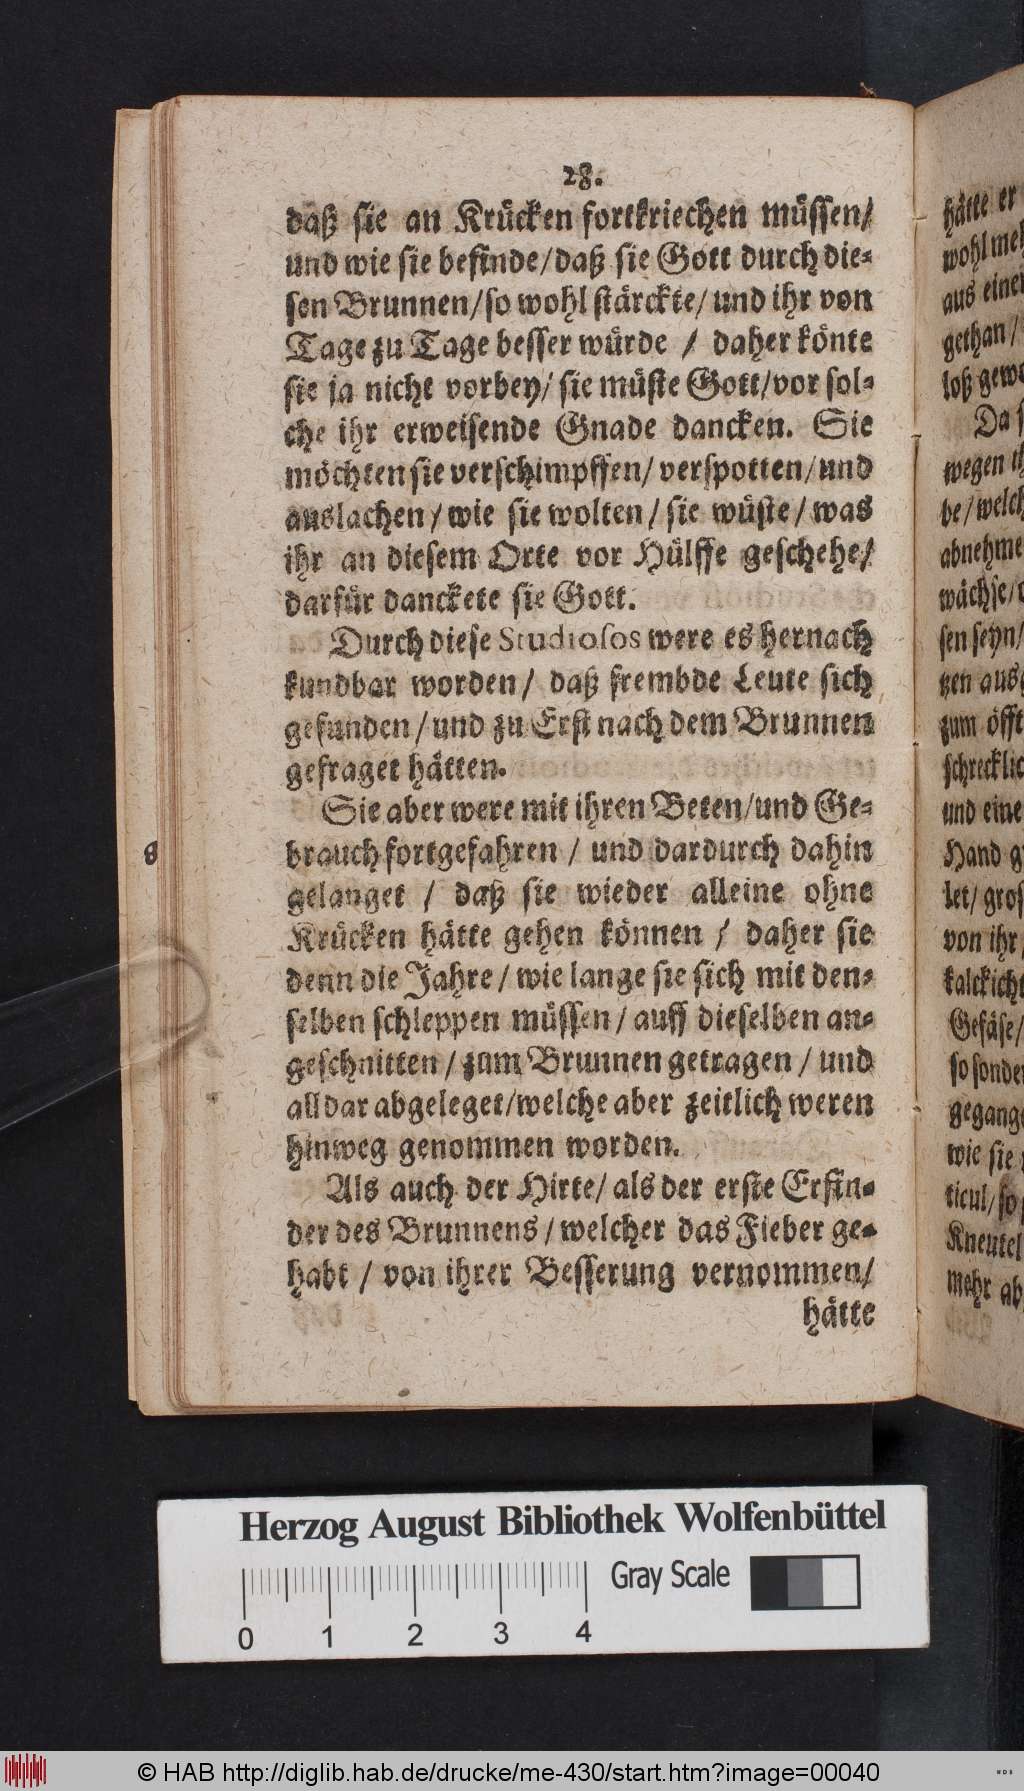 28.
daß sie an Krücken fortkriechen müssen/
und wie sie befinde/daß sie Gott durch die-
sen Brunnen/so wohl stärckte/und ihr von
Tage zu Tage besser würde / daher könte
sie ja nicht vorbey/ sie müste Gott/vor sol-
che ihr erweisende Gnade dancken. Sie
möchten sie verschimpffen/ verspotten/und
auslachen/ wie sie wolten/ sie wüste/ was
ihr an diesem Orte vor Hülffe geschehe/
darfür danckete sie Gott.
Durch diese Studiosos were es hernach
kundbar worden/ daß frembde Leute sich
gefunden/und zu Erst nach dem Brunnen
gefraget hätten.
Sie aber were mit ihren Beten/und Ge-
brauch fortgefahren / und dardurch dahin
gelanget / daß sie wieder alleine ohne
Krücken hätte gehen können / daher sie
denn die Jahre/ wie lange sie sich mit den-
selben schleppen müssen/ auff dieselben an-
geschnitten/ zum Brunnen getragen / und
alldar abgeleget/welche aber zeitlich weren
hinweg genommen worden.
Als auch der Hirte/ als der erste Erfin-
der des Brunnens/ welcher das Fieber ge-
habt / von ihrer Besserung vernommen/
hätte
8
hätte er
wohl
aus
gethan/
loß
Da
wegen
be/
abnehme
wächse/
sen seyn/
tzen
zum
und eine
Hand
let/
von ihr
Gefäse/
so
wie sie
ticul/ so
mehr
Herzog August Bibliothek Wolfenbüttel
Gray Scale
0 1 2 3 4
© HAB http://diglib.hab.de/drucke/me-430/start.htm?image=00040